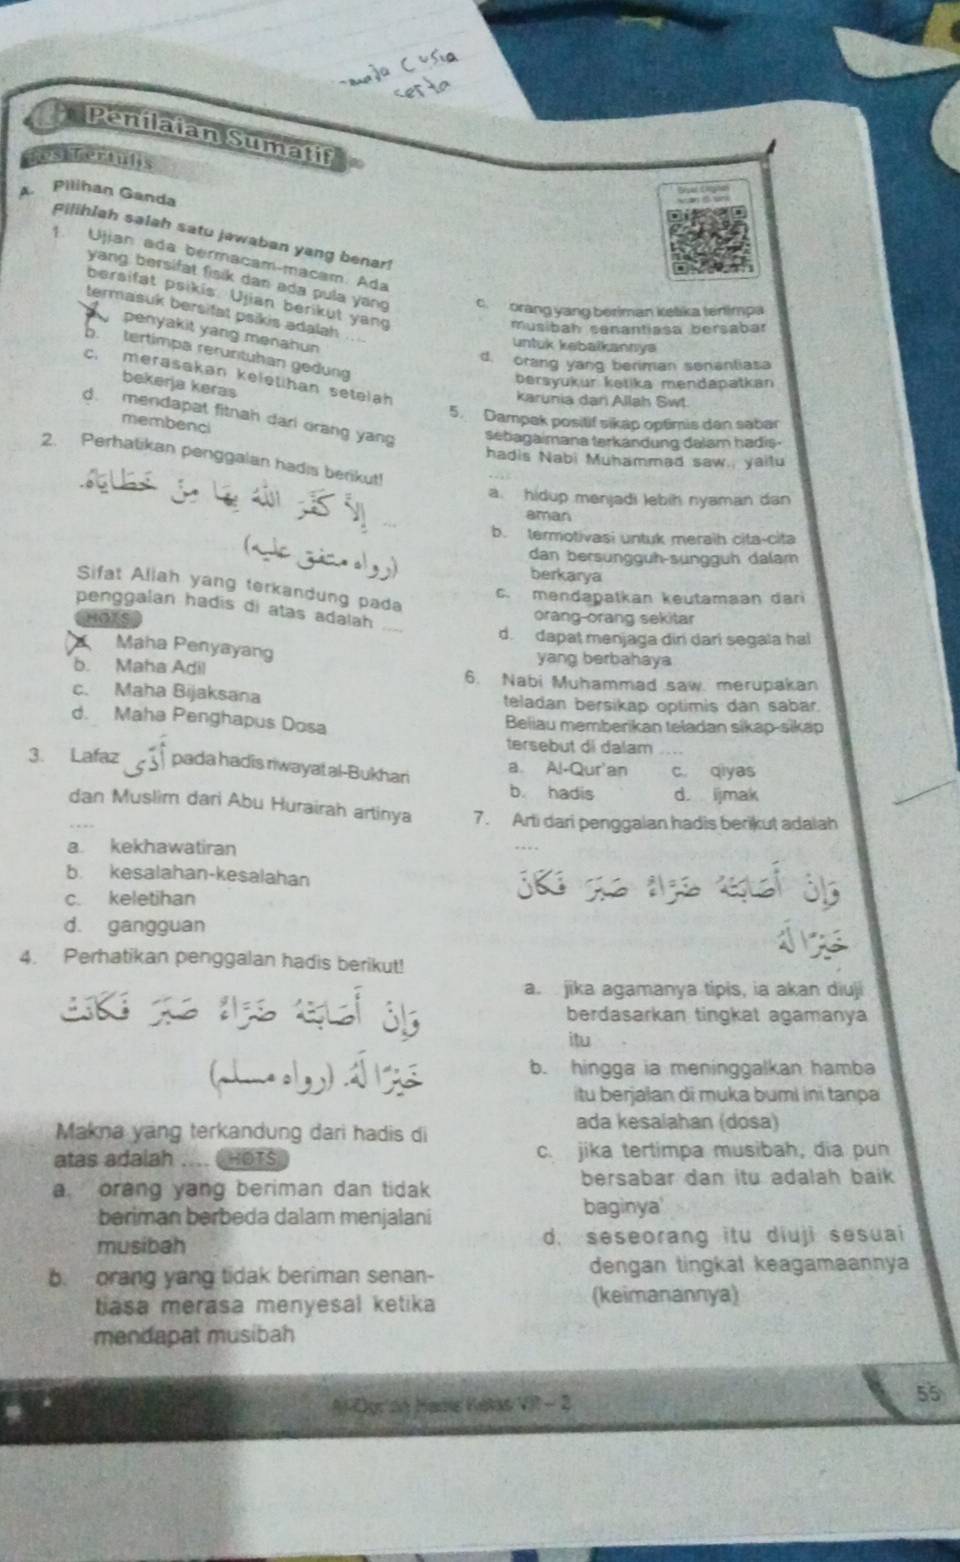 serta
Penilaian Sumatif
Tes Tertulis
A. Pilihan Ganda
Pilihlah salah satu jawaban yang benar!
1. Ujian ada bermacam-macam. Ada
yang bersifat fisik dan ada pula yang
bersifat psikis. Ujian berikut yang
termasuk bersifat psikis adalah ....
penyakit yang menahun
b. tertimpa reruntuhan gedung
c. merasakan keletihan setelah
bekerja keras
d. mendapat fitnah dari orang yang
membenci
2. Perhatikan penggalan hadis berikut!
... إِلَّا كَفَّرَ اللهُ بِهَا مِنْ خَطَايَاهُ.
(رواه متفق عليه)
Sifat Allah yang terkandung pada
penggalan hadis di atas adalah ....
HOTS
a. Maha Penyayang
b. Maha Adil
c. Maha Bijaksana
d. Maha Penghapus Dosa
3. Lafaz أَذًى pada hadis riwayat al-Bukhari
dan Muslim dari Abu Hurairah artinya
....
a. kekhawatiran
b. kesalahan-kesalahan
c. keletihan
d. gangguan
4. Perhatikan penggalan hadis berikut!
وَإِنْ أَصَابَتْهُ ضَرَّاءُ صَبَرَ فَكَانَتْ
خَيْرًا لَهُ. (رواه مسلم)
Makna yang terkandung dari hadis di
atas adalah .... HOTS
a. orang yang beriman dan tidak
beriman berbeda dalam menjalani
musibah
b. orang yang tidak beriman senan-
tiasa merasa menyesal ketika
mendapat musibah
c. orang yang beriman ketika tertimpa
musibah senantiasa bersabar
untuk kebaikannya
d. orang yang beriman senantiasa
bersyukur ketika mendapatkan
karunia dari Allah Swt.
5. Dampak positif sikap optimis dan sabar
sebagaimana terkandung dalam hadis-
hadis Nabi Muhammad saw., yaitu
....
a. hidup menjadi lebih nyaman dan
aman
b. termotivasi untuk meraih cita-cita
dan bersungguh-sungguh dalam
berkarya
c. mendapatkan keutamaan dari
orang-orang sekitar
d. dapat menjaga diri dari segala hal
yang berbahaya
6. Nabi Muhammad saw. merupakan
teladan bersikap optimis dan sabar.
Beliau memberikan teladan sikap-sikap
tersebut di dalam ....
a. Al-Qur'an c. qiyas
b. hadis d. ijmak
7. Arti dari penggalan hadis berikut adalah
....
وَإِنْ أَصَابَتْهُ ضَرَّاءُ صَبَرَ فَكَانَ
خَيْرًا لَهُ
a. jika agamanya tipis, ia akan diuji
berdasarkan tingkat agamanya
itu
b. hingga ia meninggalkan hamba
itu berjalan di muka bumi ini tanpa
ada kesalahan (dosa)
c. jika tertimpa musibah, dia pun
bersabar dan itu adalah baik
baginya'
d. seseorang itu diuji sesuai
dengan tingkat keagamaannya
(keimanannya)
Al-Qur'an Hadis Kelas VII - 2
55